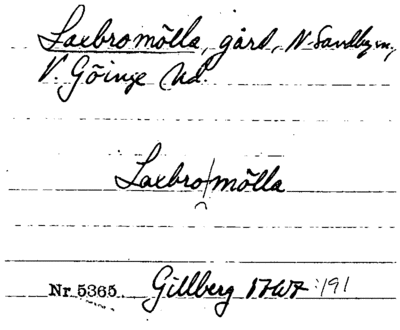 Laxbromölla, gård, N. Sandby sn,
V. Göinge hd.
Laxbromölla
Nr 5365. Gillberg 1767 :191